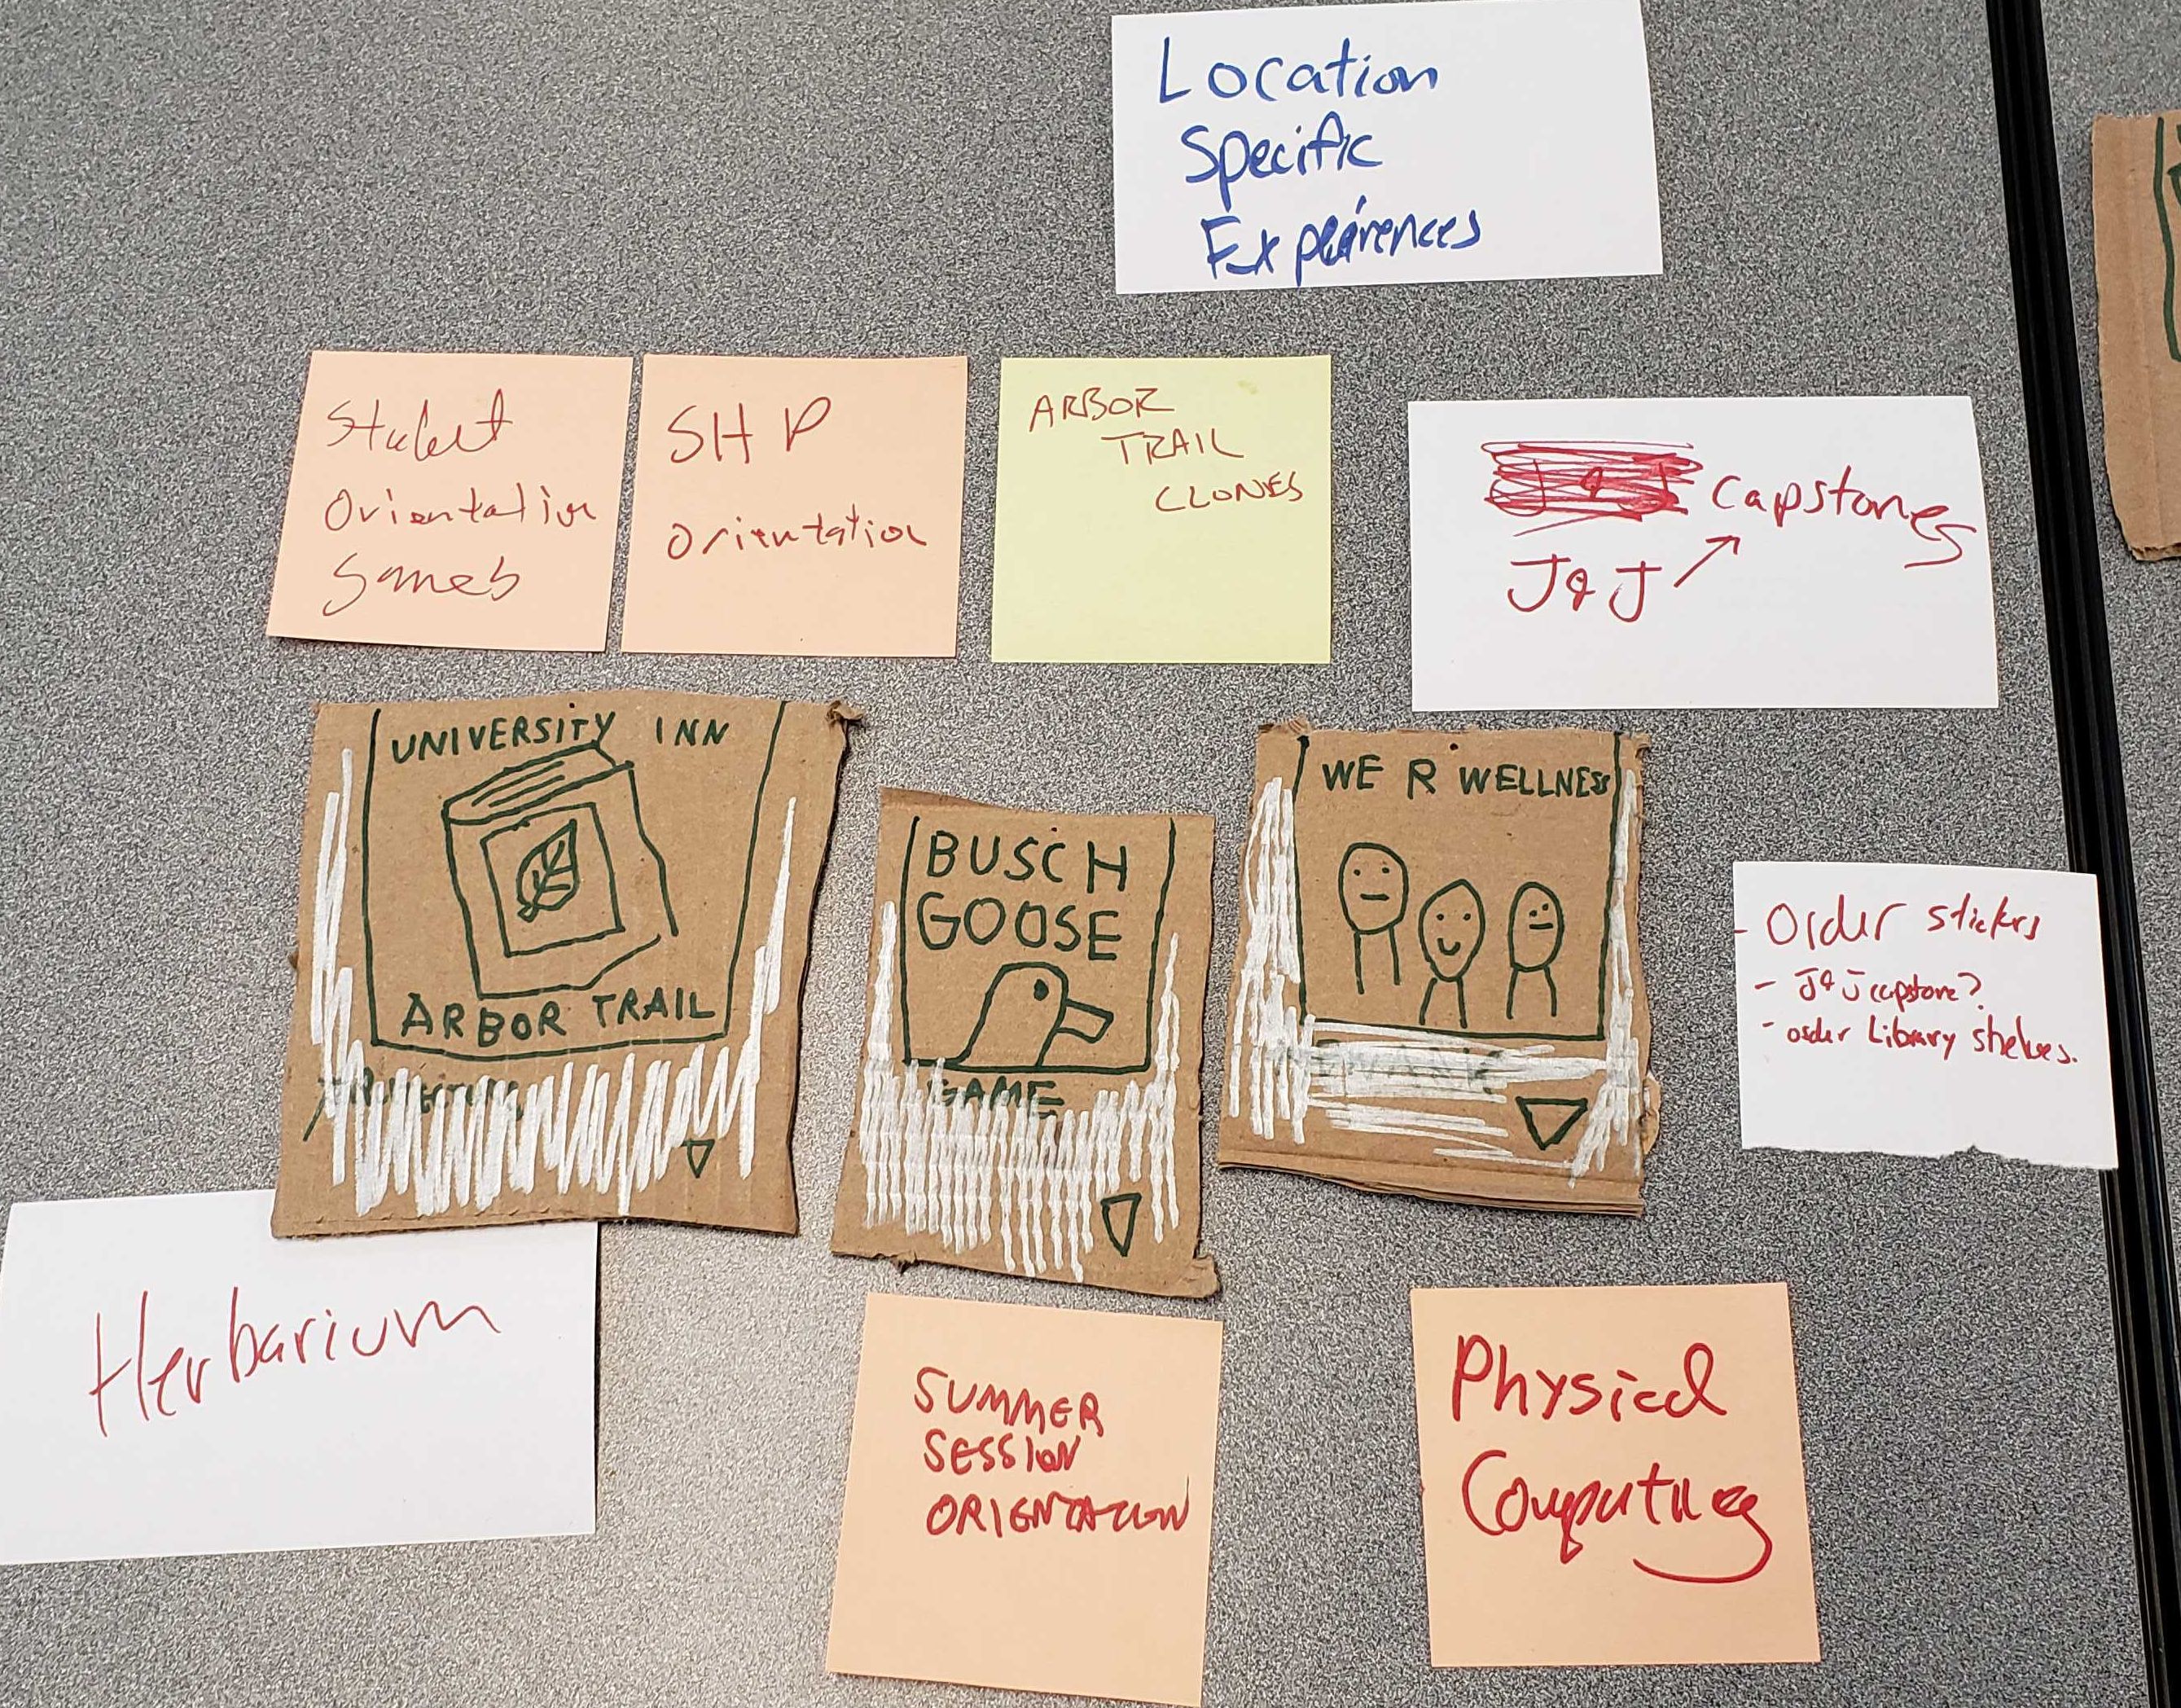 Location
Specific
Experiences
Student
Orientation
Games
SHP
Orientation
ARBOR
TRAIL
CLONES
J&J Capstones
J&J
UNIVERSITY INN
ARBOR TRAIL
BUSCH
GOOSE
GAME
WE R WELLNESS
NEWARK
- Order stickers
- J&J capstone?
- order Library shelves.
Herbarium
SUMMER
SESSION
ORIENTATION
Physical
Computing